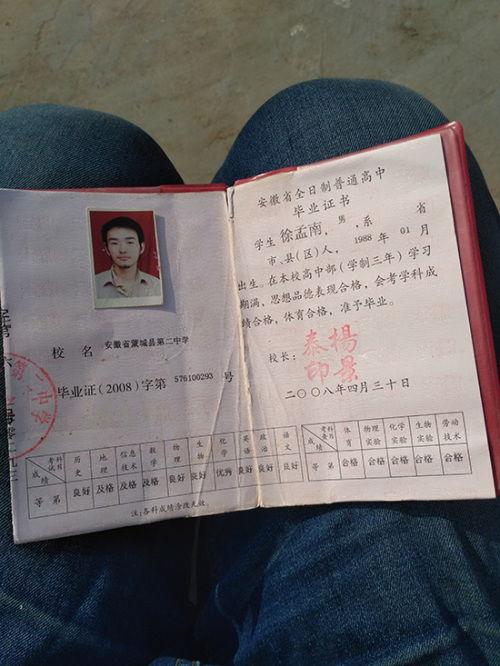 校 名 安徽省蒙城县第二中学
毕业证(2008)字第 576100293 号
考试科目 成绩 历史 地理 信息技术 数学 物理 生物 化学 英语 政治 语文
等 第 良好 及格 及格 及格 良好 良好 优秀 良好 良好 良好
注:各科成绩涂改无效。
安徽省全日制普通高中
毕业证书
学生 徐孟南, 男 ,系 省
市、县(区)人, 1988 年 01 月
出生。在本校高中部(学制三年)学习
期满,思想品德表现合格,会考学科成
绩合格,体育合格,准予毕业。
校长:
楊景泰印
二〇〇八年四月三十日
考查科目 成绩 体育 物理实验 化学实验 生物实验 劳动技术
等 第 合格 合格 合格 合格 合格